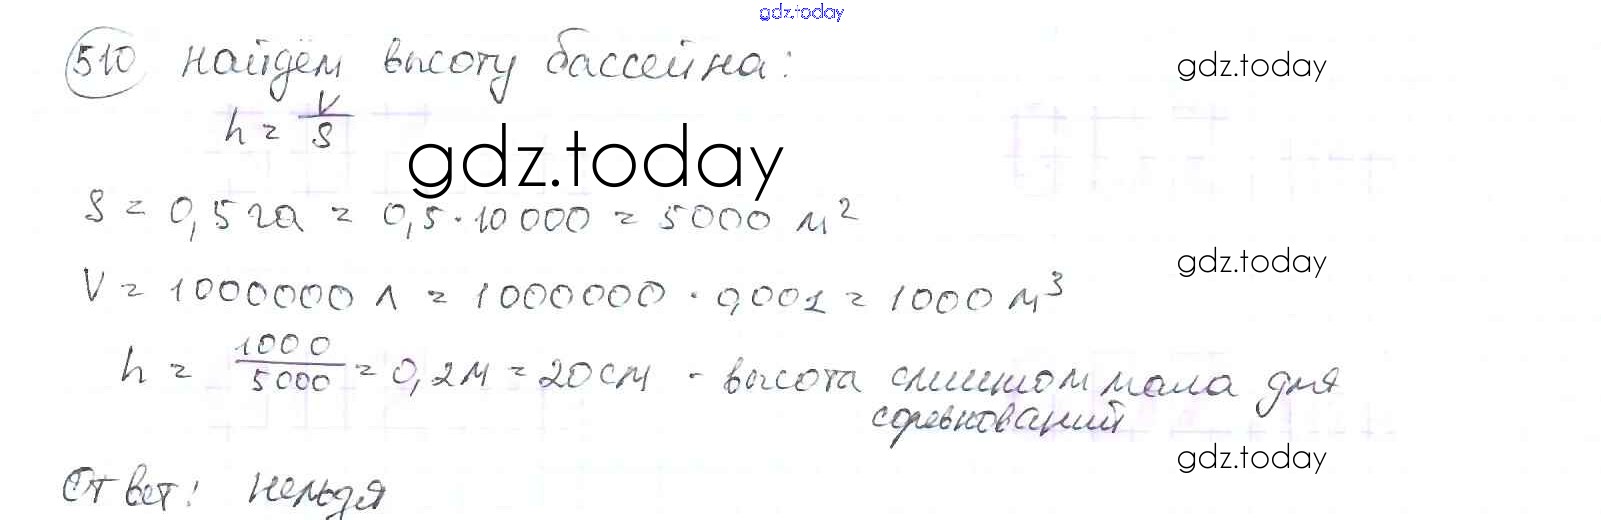 gdz.today
510 найдём высоту бассейна:
gdz.today
h = V/S
gdz.today
S = 0,5 га = 0,5 · 10 000 = 5000 м²
gdz.today
V = 1000000 л = 1000000 · 0,001 = 1000 м³
h = 1000/5000 = 0,2м = 20см - высота слишком мала для
соревнований
gdz.today
Ответ: нельзя